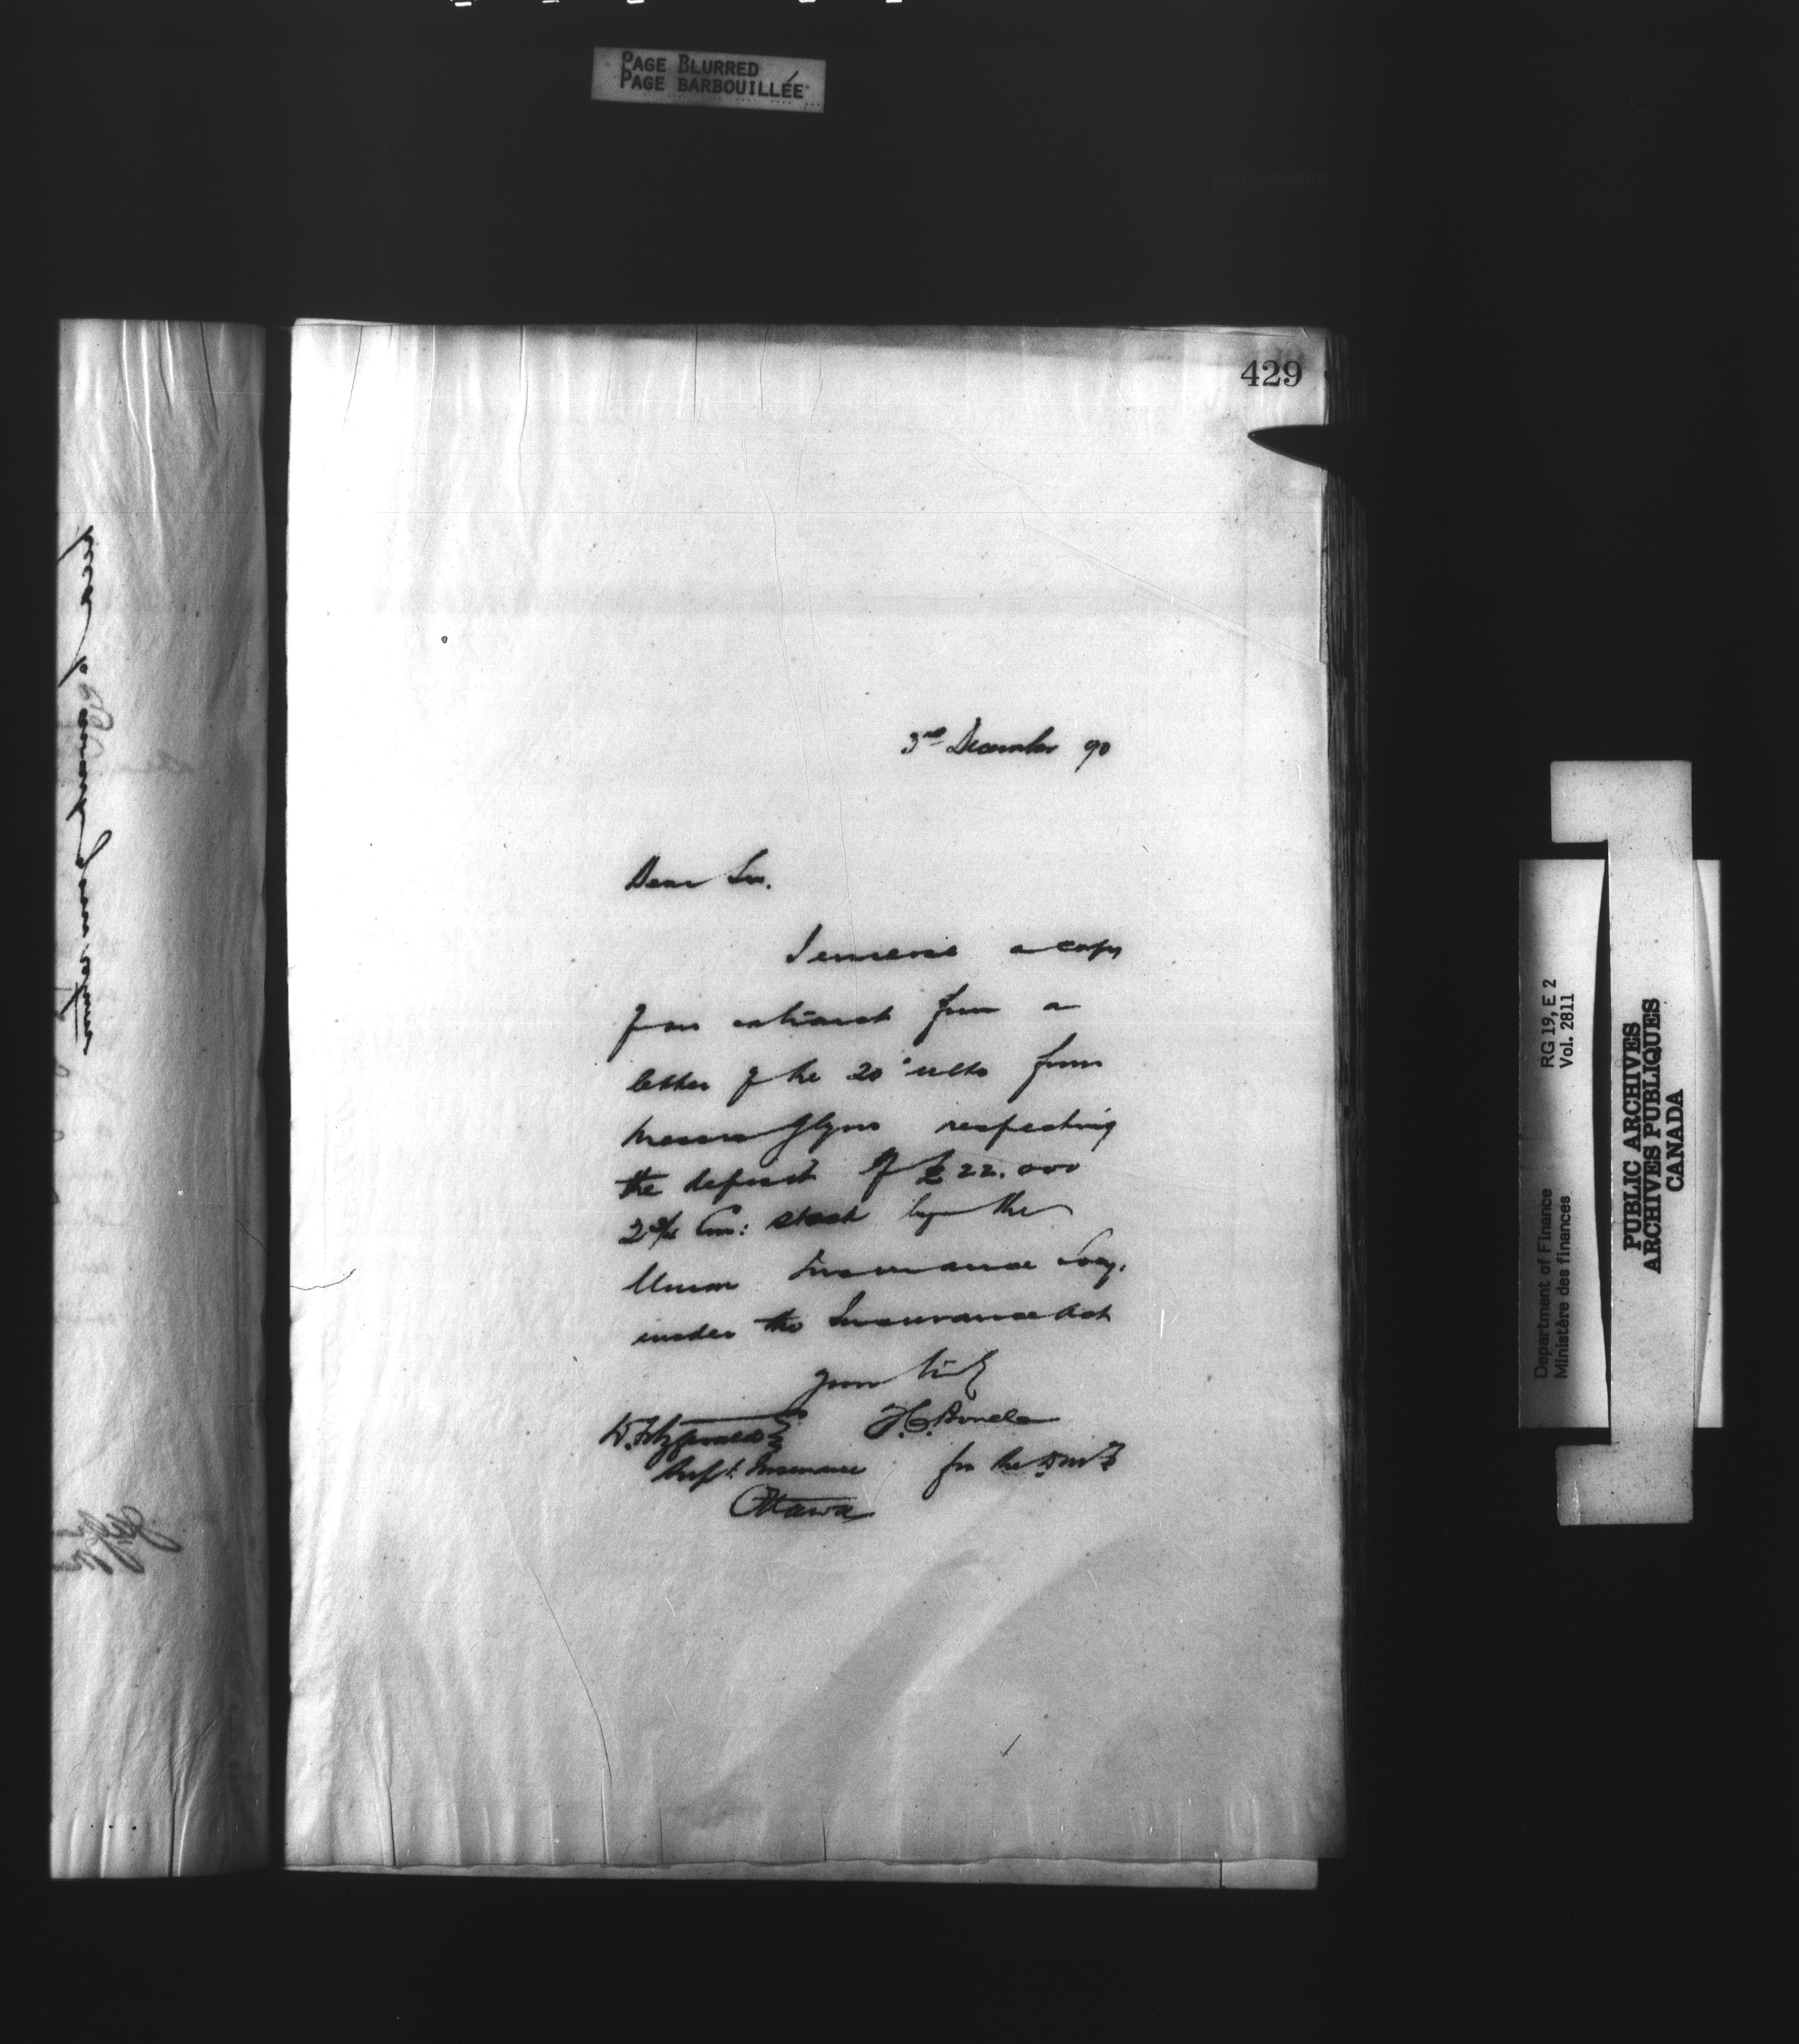 PAGE BLURRED
PAGE BARBOUILLÉE
429
3rd December 90
Dear Sir.
I enclose a copy
of an extract from a
letter of the 20" ulto from
Messrs Glyns respecting
the deposit of £22.000
2¾ Con: stock by the
Union Insurance Socy.
under the Insurance Act
Yours truly
W. Fitzgerald Esq
Supt. Insurance
Ottawa
for the D.M.F.
RG 19, E 2
Vol. 2811
Department of Finance
Ministère des finances
PUBLIC ARCHIVES
ARCHIVES PUBLIQUES
CANADA